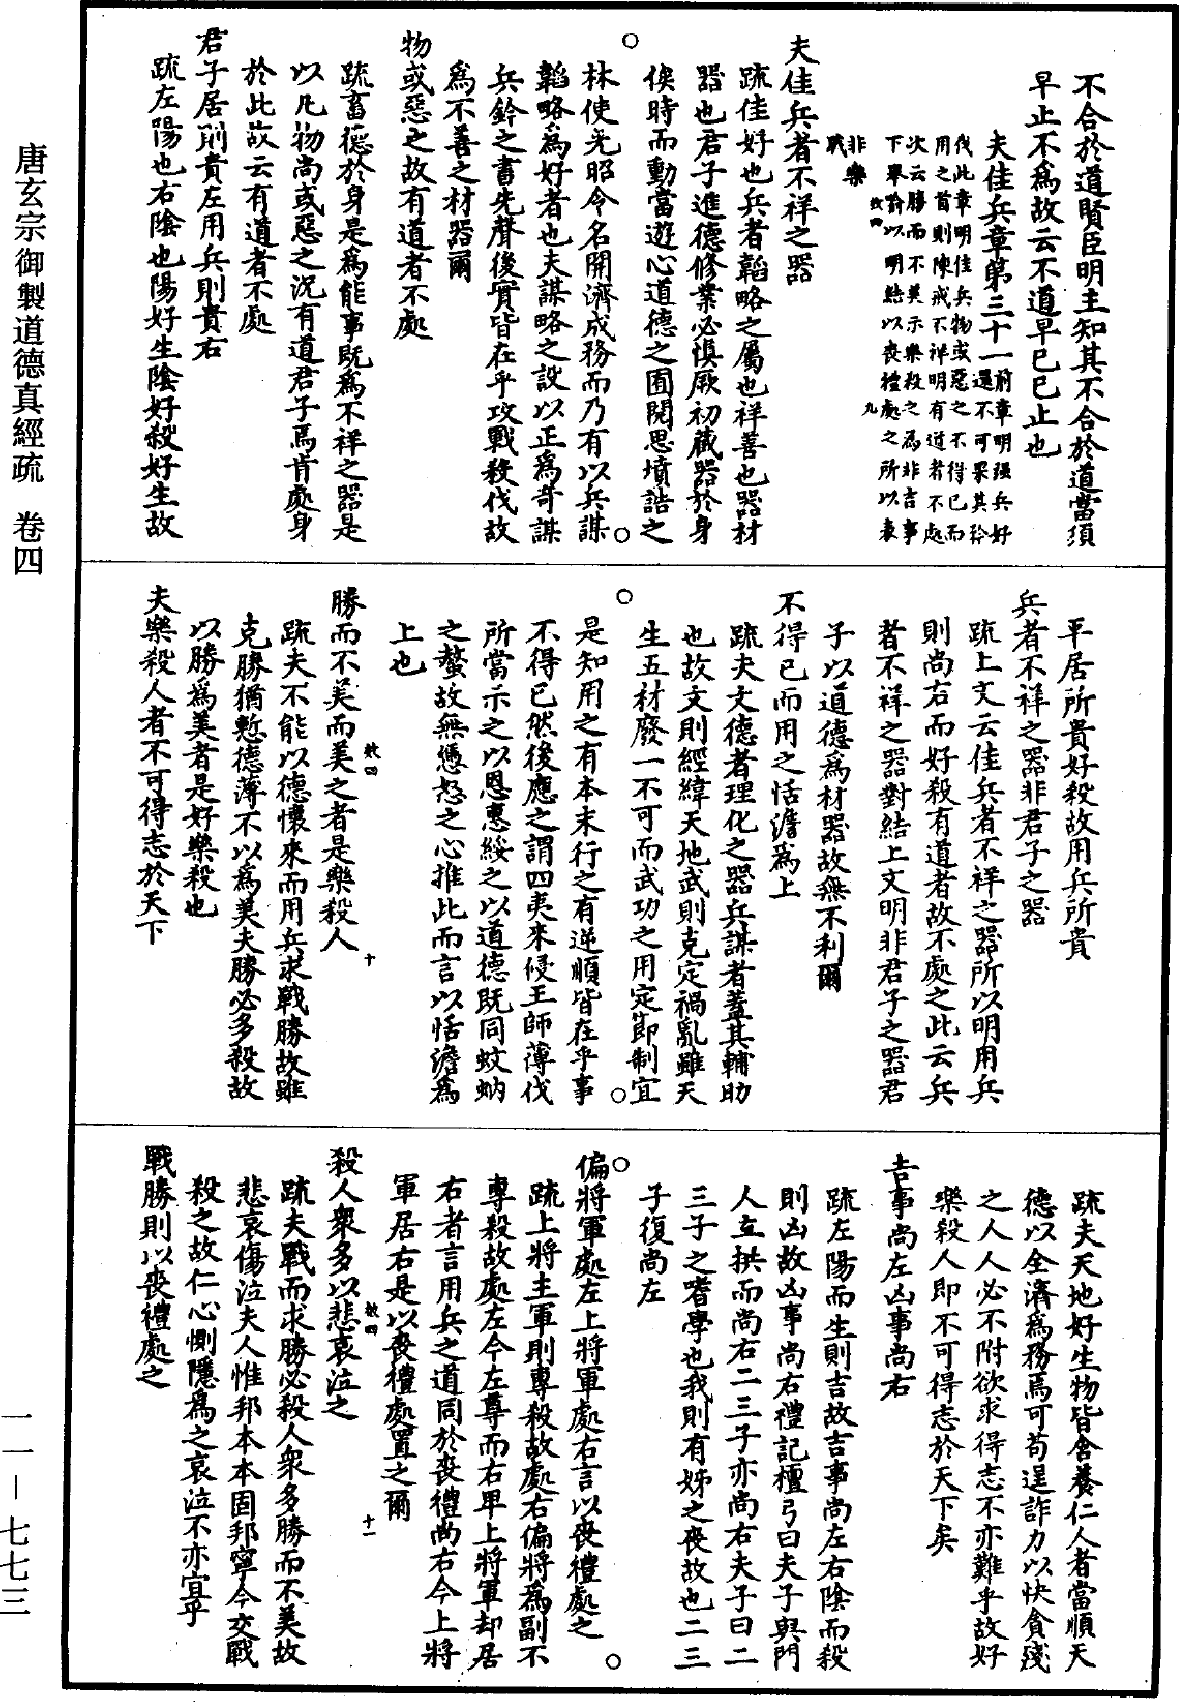 唐玄宗御製道德真經疏　卷四
不合於道賢臣明主知其不合於道當須
早止不爲故云不道早已已止也
夫佳兵章第三十一前章明强兵好還不可果其矜
伐此章明佳兵物或惡之不得已而
用之首則陳戒不祥明有道者不處
次云勝而不美示樂殺之爲非吉事
下舉喻以明結以喪禮處之所以表
非樂
戰
效四　九
夫佳兵者不祥之器
疏佳好也兵者韜略之屬也祥善也器材
器也君子進德修業必慎厥初藏器於身
俟時而動當遊心道德之囿閱思墳誥之
林使光昭令名開濟成務而乃有以兵謀
韜略爲好者也夫謀略之設以正爲奇謀
兵鈐之書先聲後實皆在乎攻戰殺伐故
爲不善之材器爾
物或惡之故有道者不處
疏畜德於身是爲能事既爲不祥之器是
以凡物尚或惡之況有道君子焉肯處身
於此故云有道者不處
君子居則貴左用兵則貴右
疏左陽也右陰也陽好生陰好殺好生故
平居所貴好殺故用兵所貴
兵者不祥之器非君子之器
疏上文云佳兵者不祥之器所以明用兵
則尚右而好殺有道者故不處之此云兵
者不祥之器對結上文明非君子之器君
子以道德爲材器故無不利爾
不得已而用之恬澹爲上
疏夫文德者理化之器兵謀者蓋其輔助
也故文則經緯天地武則克定禍亂雖天
生五材廢一不可而武功之用定節制宜
是知用之有本末行之有逆順皆在乎事
不得已然後應之謂四夷來侵王師薄伐
所當示之以恩惠綏之以道德既同蚊蚋
之螫故無憑怒之心推此而言以恬澹爲
上也
勝而不美而美之者是樂殺人
效四　十
疏夫不能以德懷來而用兵求戰勝故雖
克勝猶慙德薄不以爲美夫勝必多殺故
以勝爲美者是好樂殺也
夫樂殺人者不可得志於天下
疏夫天地好生物皆含養仁人者當順天
德以全濟爲務焉可苟逞詐力以快貪殘
之人人必不附欲求得志不亦難乎故好
樂殺人即不可得志於天下矣
吉事尚左凶事尚右
疏左陽而生則吉故吉事尚左右陰而殺
則凶故凶事尚右禮記檀弓曰夫子與門
人立拱而尚右二三子亦尚右夫子曰二
三子之嗜學也我則有姊之喪故也二三
子復尚左
偏將軍處左上將軍處右言以喪禮處之
疏上將主軍則專殺故處右偏將爲副不
專殺故處左今左尊而右卑上將軍却居
右者言用兵之道同於喪禮尚右今上將
軍居右是以喪禮處置之爾
殺人衆多以悲哀泣之
效四　十一
疏夫戰而求勝必殺人衆多勝而不美故
悲哀傷泣夫人惟邦本本固邦寧今交戰
殺之故仁心惻隱爲之哀泣不亦宜乎
戰勝則以喪禮處之
一一—七七三